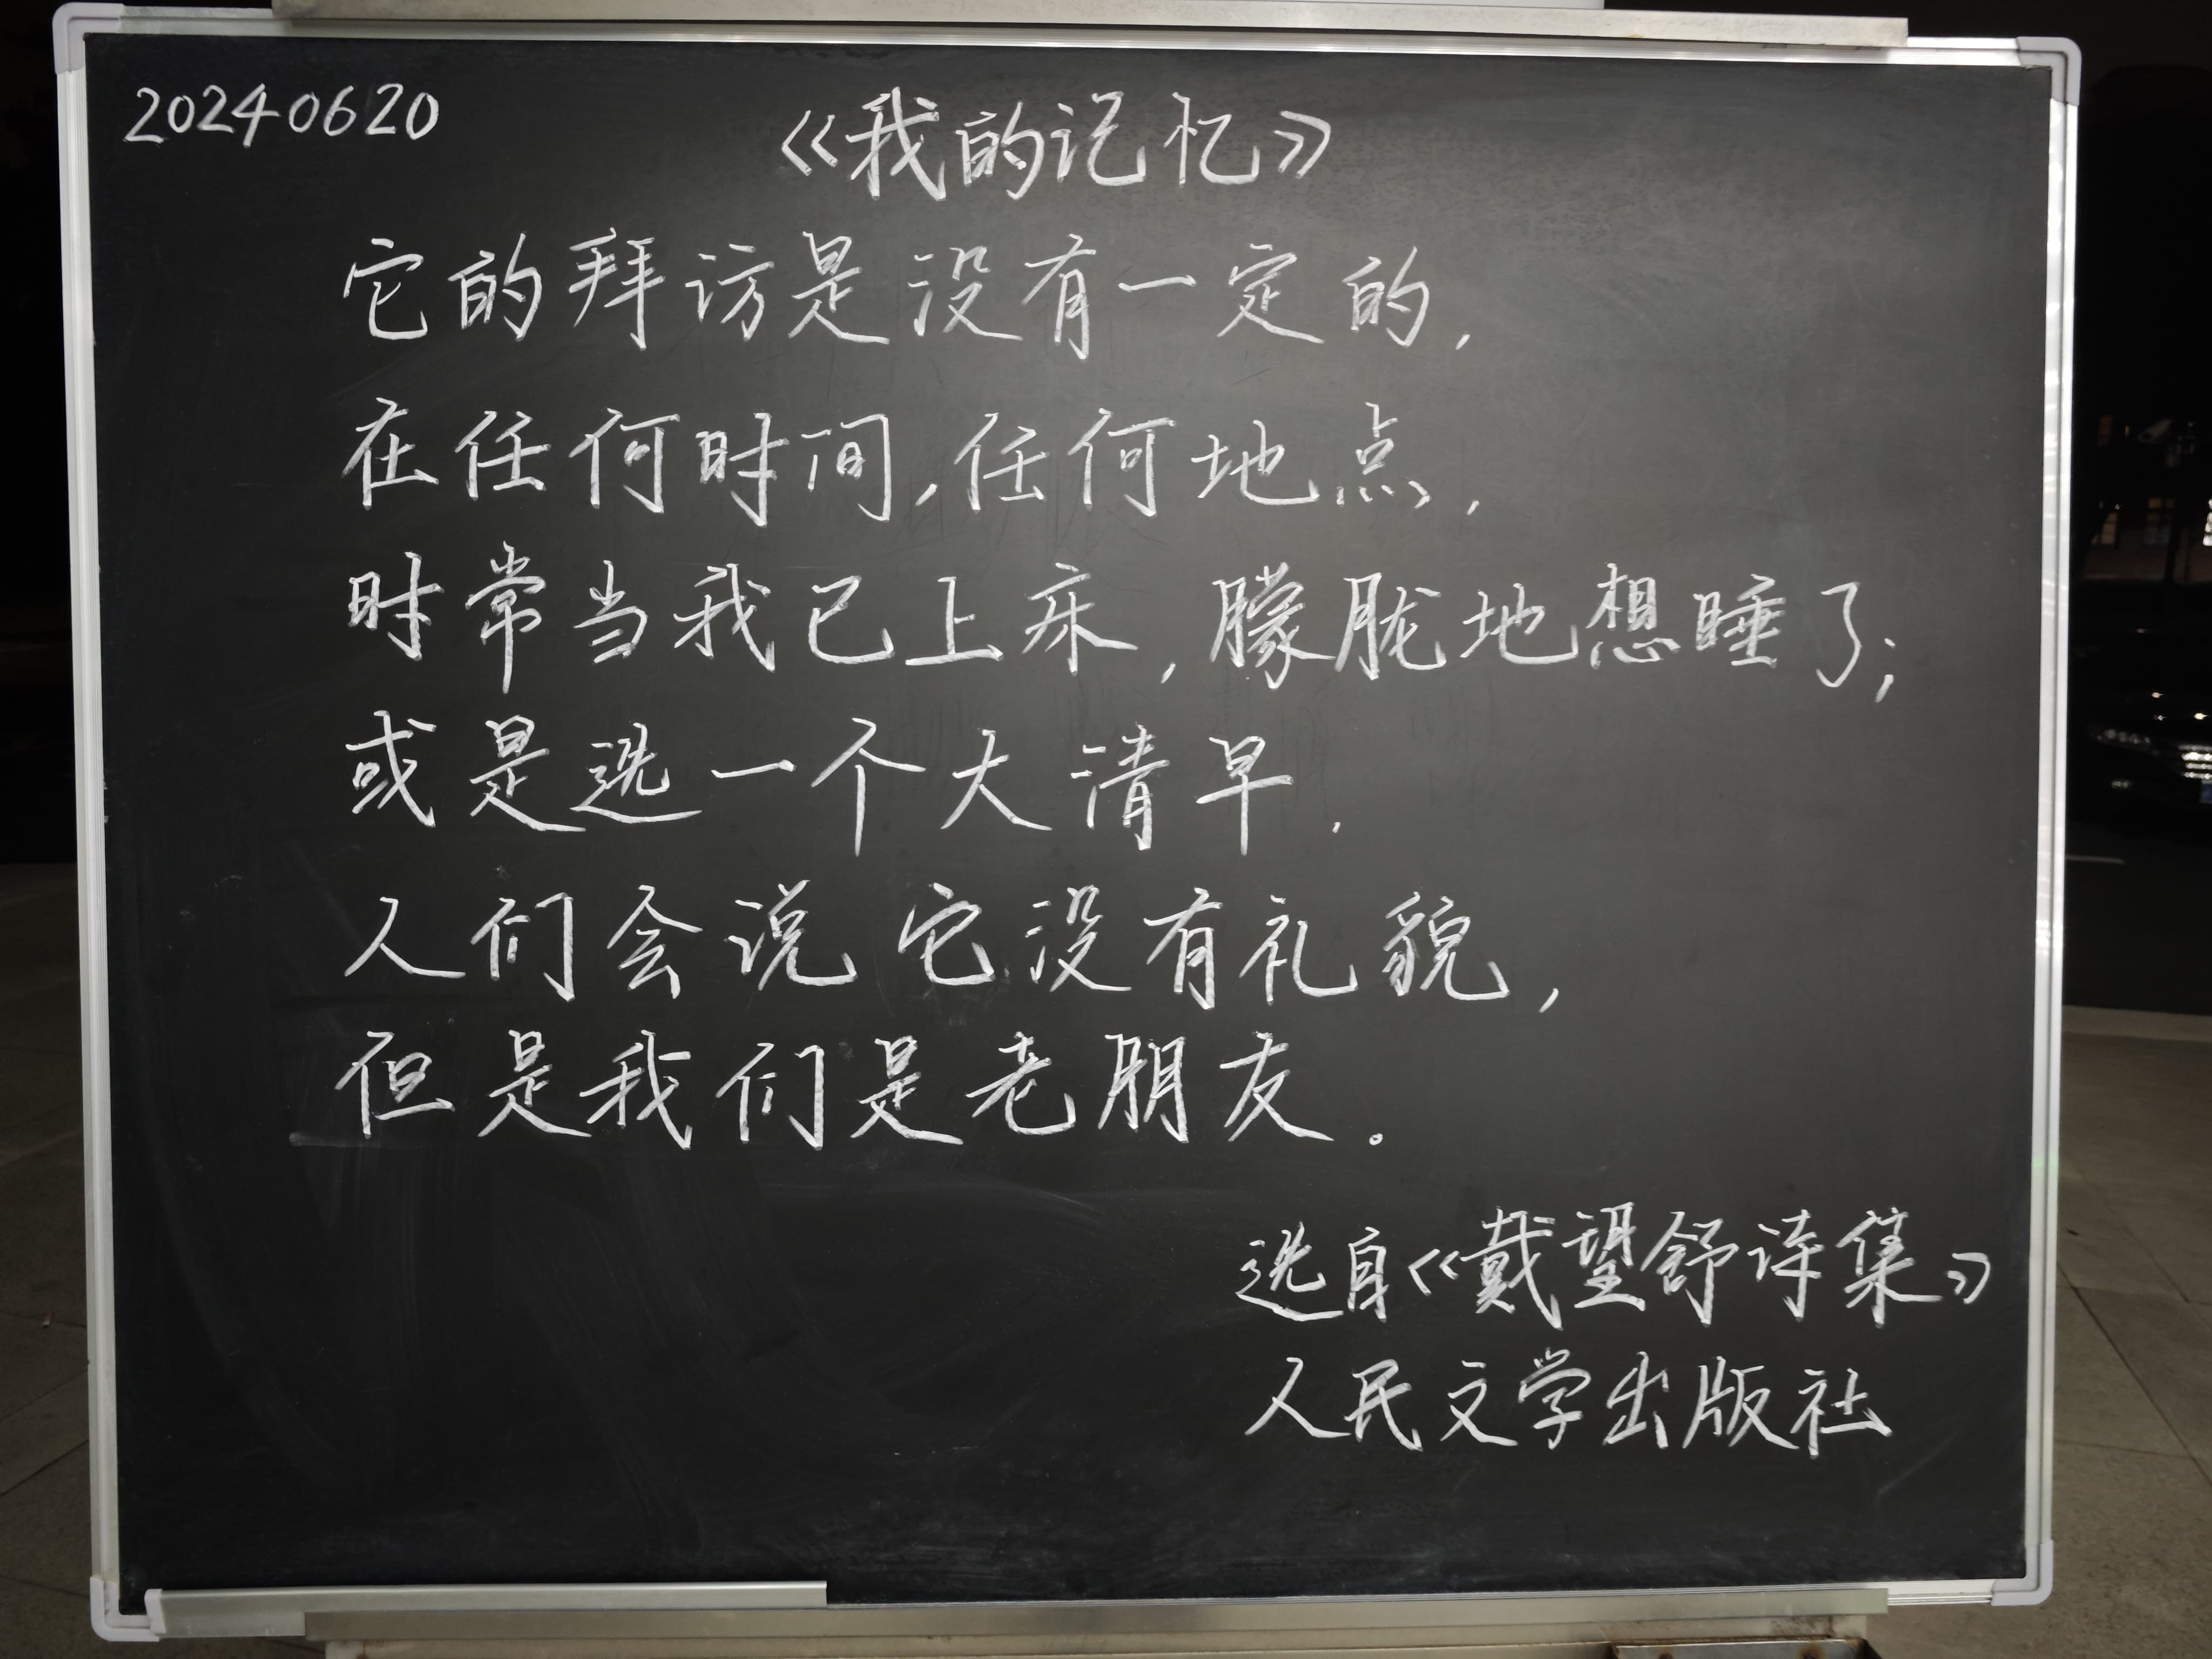 20240620
《我的记忆》
它的拜访是没有一定的，
在任何时间，任何地点，
时常当我已上床，朦胧地想睡了；
或是选一个大清早，
人们会说它没有礼貌，
但是我们是老朋友。
选自《戴望舒诗集》
人民文学出版社